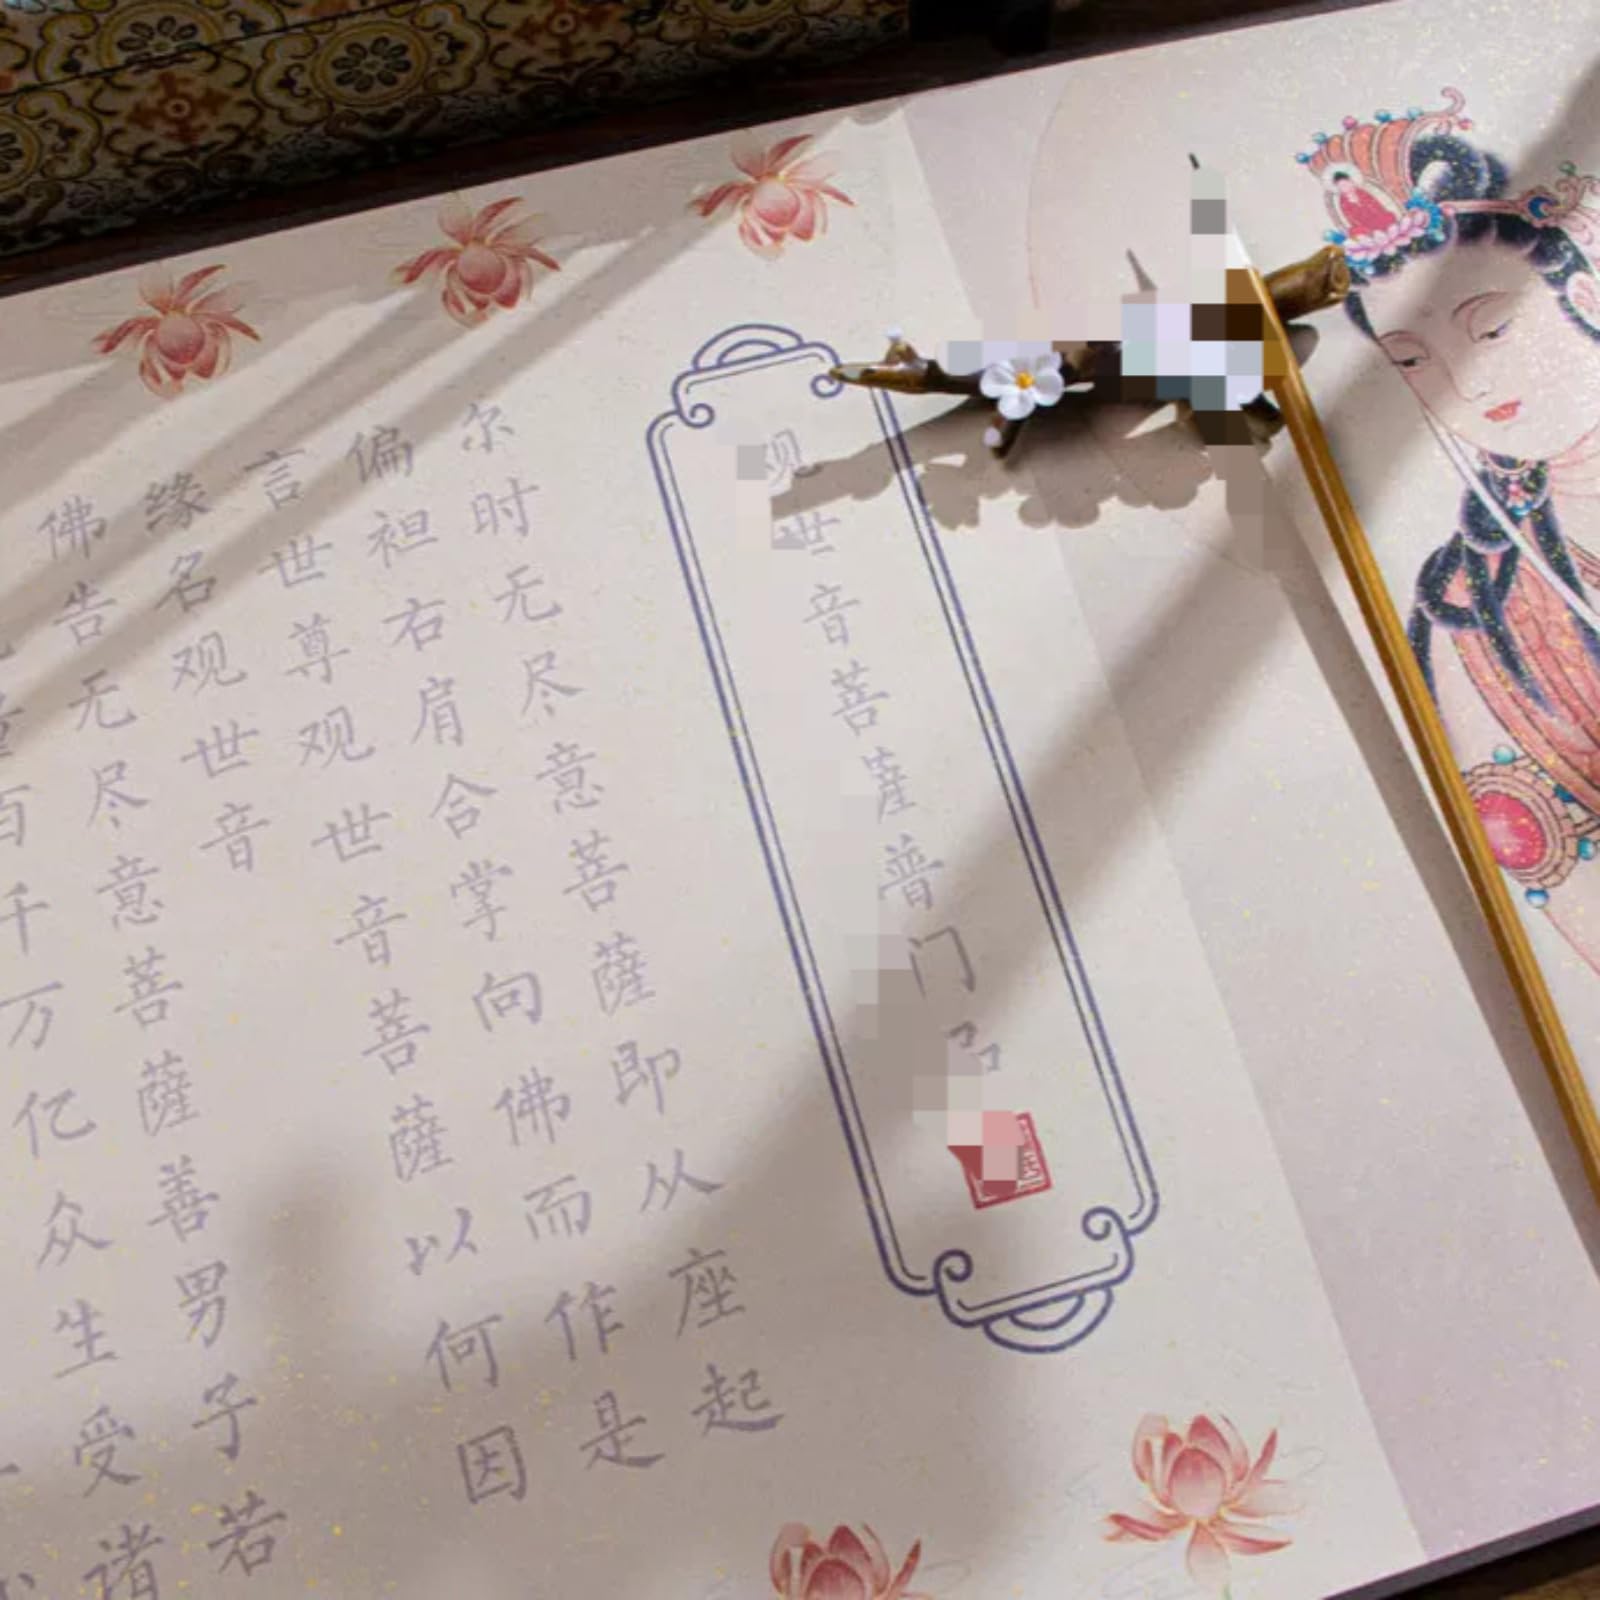 世音菩萨普门品
尔时无尽意菩薩即从座起
偏袒右肩合掌向佛而作是
言世尊观世音菩薩以何因
缘名观世音
佛告无尽意菩薩善男子若
百千万亿众生受诸